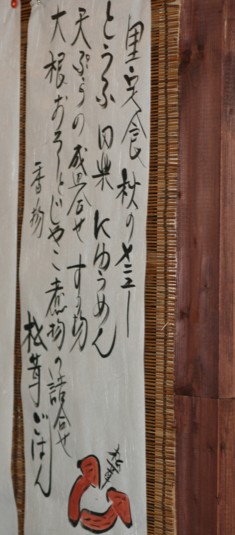 里定食 秋のメニュー
とうふ田楽 にゅうめん
天ぷらの盛合せ すの物
大根おろしとじゃこ 煮物の詰合せ
香物 松茸ごはん